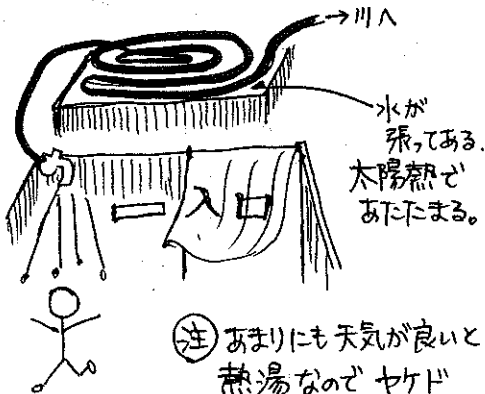 →川へ
水が
張ってある。
太陽熱で
あたたまる。
入口
注 あまりにも天気が良いと
熱湯なのでヤケド